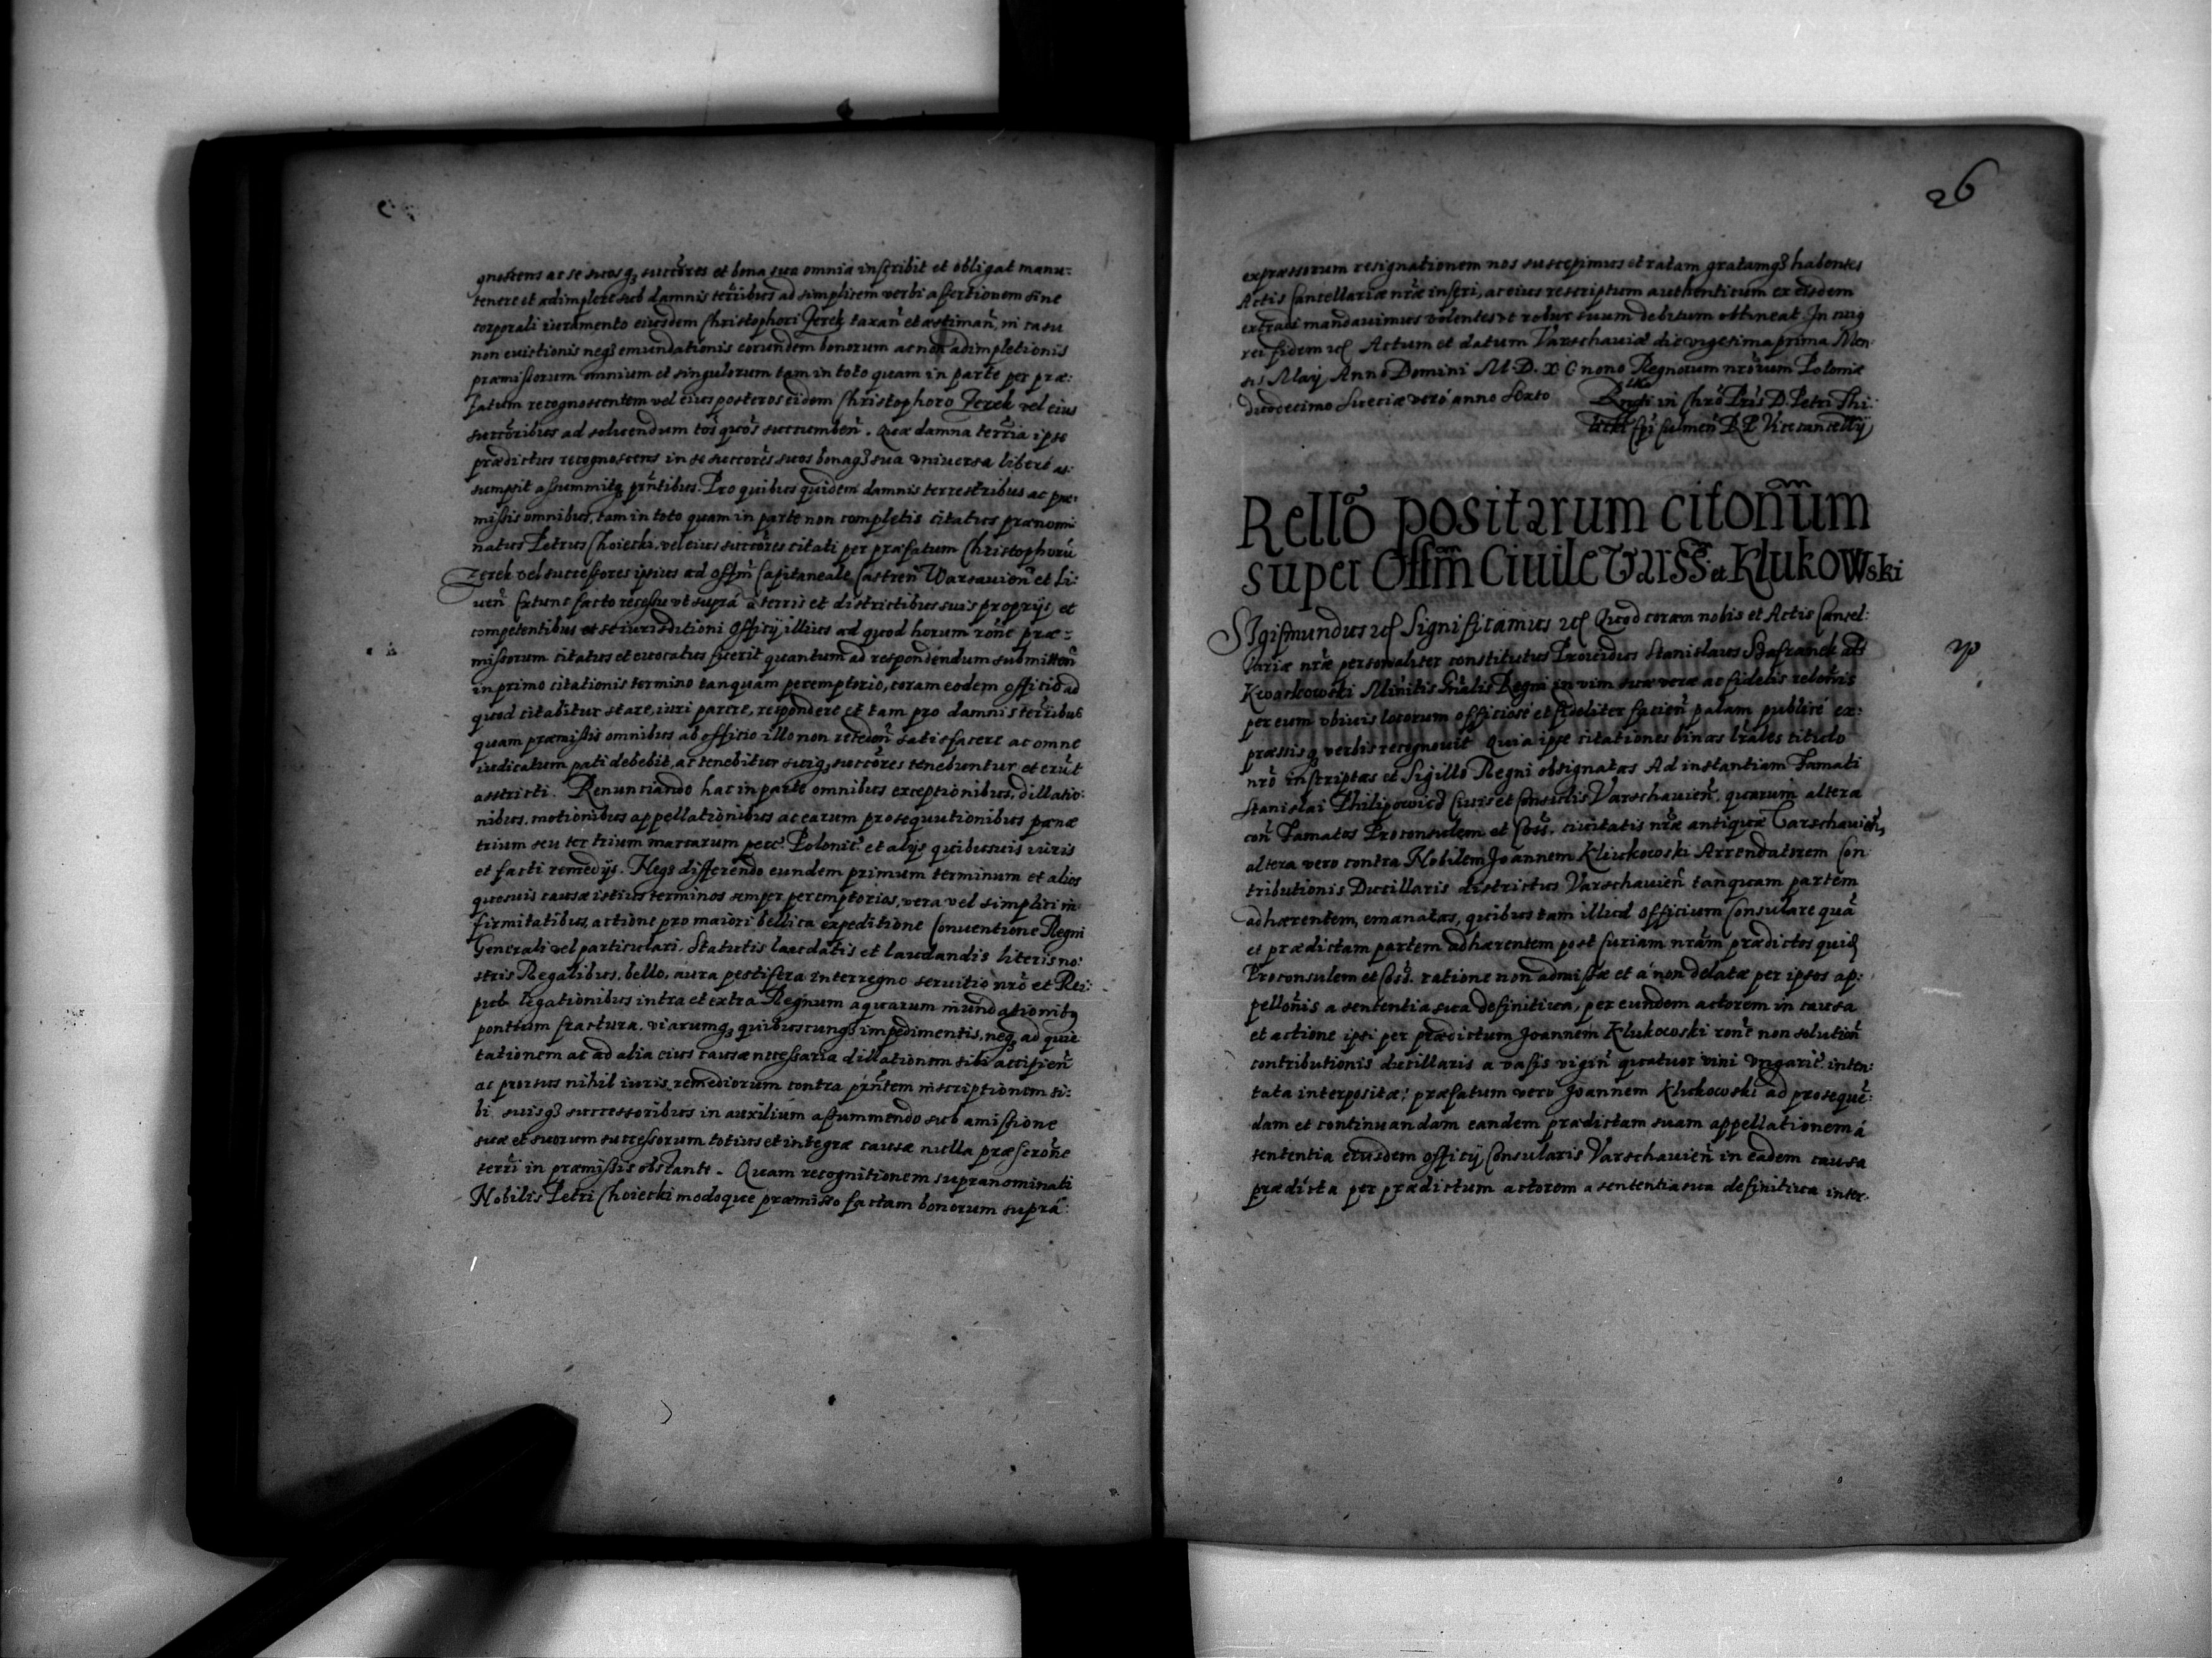 gnoscens ac se suosq, succ̃ores et bona sua omnia inscribit et obligat manu:
tenere et adimplere sub damnis terr̃ibus ad simplicem verbi assertionem sine
corporali iuramento eiusdem Christophori Zerek taxañ et æstimañ, in casu
non euictionis neq3 emundationis eorundem bonorum ac non adimpletionis
præmissorum omnium et singulorum tam in toto quam in parte per præ:
fatum recognoscentem vel eius posteros eidem Christophoro Zerek vel eius
succ̃oribus ad soluendum tos quõs succumbeñ. Quæ damna terr̃ia ipse
prædictus recognoscens in se succorẽs suos bonaq3 sua vniuersa liberé as:
sumpsit assummitq, pr̃ntibus. Pro quibus quidem damnis terrestribus ac præ:
missis omnibus, tam in toto quam in parte non completis citatus prænomi:
natus Petrus Choiecki, vel eius succ̃ores citati per præfatum Christophorũ
Zerek vel successores ipsius ad offm̃ Capitaneale Castreñ Warsauieñ et Li:
ueñ Extunc facto recessu vt suprá á terris et districtibus suis proprijs, et
competentibus et se iurisditioni Officij, illius ad quod horum rõne præ:
missorum citatus et euocatus fuerit quantum ad respondendum submitteñ
in primo citationis termino tanquam peremptorio, coram eodem officio ad
quod citabitur stare, iuri parere, respondere et tam pro damnis terr̃ibus
quam præmissis omnibus ab officio illo non recedeñ satisfacere ac omne
iudicatum pati debebit, ac tenebitur suiq, succ̃ores tenebuntur et erũt
astricti. Renunciando hac in parte omnibus exceptionibus, dillatio:
nibus, motionibus appellationibus ac earum prosequutionibus pœnæ
trium seu ter trium marcarum pecc̃ Polonic̃ et alijs quibusuis iuris
et facti remedijs. Neq3 differendo eundem primum terminum et alios
quosuis causæ istius terminos semper peremptorios, vera vel simplici in:
firmitatibus, actione pro maiori bellica expeditione Conuentione Regni
Generali vel particulari. Statutis laudatis et laudandis literis no:
stris Regalibus, bello, aura pestifera Interregno seruitio nr̃o et Rei:
pub. legationibus intra et extra Regnum aquarum inundationibq
pontium fractura, viarumq, quibuscunq3 impedimentis, neq, ad quie
tationem ac ad alia eius causæ necessaria dillationem sibi accipieñ
ac prorsus nihil iuris, remediorum contra pr̃ntem inscriptionem si:
bi suisq3 successoribus in auxilium assummendo sub amissione
suæ et suorum successorum totius et integræ causæ nulla præscrõne
terr̃i in præmissis obstante. Quam recognitionem supranominati
Nobilis Petri Choiecki modoque præmisso factam bonorum suprá:
26
expræssorum resignationem nos suscepimus et ratam gratamq3 habentes
Actis Cancellariæ nr̃æ inseri, ac eius rescriptum authenticum ex eisdem
extradi mandauimus volentes vt robur suum debitum obtineat. In cuiq
rei fidem etc Actum et datum Varschauiæ die vigesima prima Men:
sis Maij, Anno Domini M.D.XC nono Regnorum nr̃orum Poloniæ
duodecimo Sueciæ veró anno Sexto
Rndi in Chrõ Pris D. Petri Thi:
licki Epi Culmeñ R.P. Vicecancellij,
Rellõ positarum citoñum
super Offm̃ Ciuile Varss̃. et Klukowski
Sigismundus etc Significamus etc Quod coram nobis et Actis Cancel:
lariæ nr̃æ personaliter constitutus Prouidus Stanislaus Szafranek als
Kwaskowski Minis̃tis Gñalis Regni in vim suæ veræ ac fidelis relõnis
per eum vbiuis locorum officiosé et fideliter facieñ palam publicé ex:
præssisq, verbis recognouit Quia ipse citationes binas lr̃ales titulo
nrõ inscriptas et Sigillo Regni obsignatas Ad instantiam Famati
Stanislai Philipowicz Ciuis et Consulis Varschauieñ. quarum altera
coñ Famatos Proconsulem et Coss̃. ciuitatis nr̃æ antiquæ Varschauieñ,
altera vero contra Nobilem Joannem Klukowski Arrendatorem Con:
tributionis Ducillaris districtus Varschauieñ tanquam partem
adhærentem, emanatas, quibus tam illud Officium Consulare quã
et prædictam partem adhærentem post Curiam nrãm prædictos quid
Proconsulem et Coss̃. ratione non admissæ et á non delatæ per ipsos ap:
pellõnis a sententia sua definitiua, per eundem actorem in causa
et actione ipsi per prædictum Joannem Klukowski ronẽ non solutioñ
contributionis ducillaris a vasis vigiñ quatuor vini Vngaric̃ inten:
tata interpositæ; præfatum vero Joannem Klukowski ad prosequẽ:
dam et continuandam eandem prædictam suam appellationem á
sententia eiusdem officij, Consularis Varschauieñ in eadem causa
prædicta per prædictum actorem a sententia sua definitiua inter: